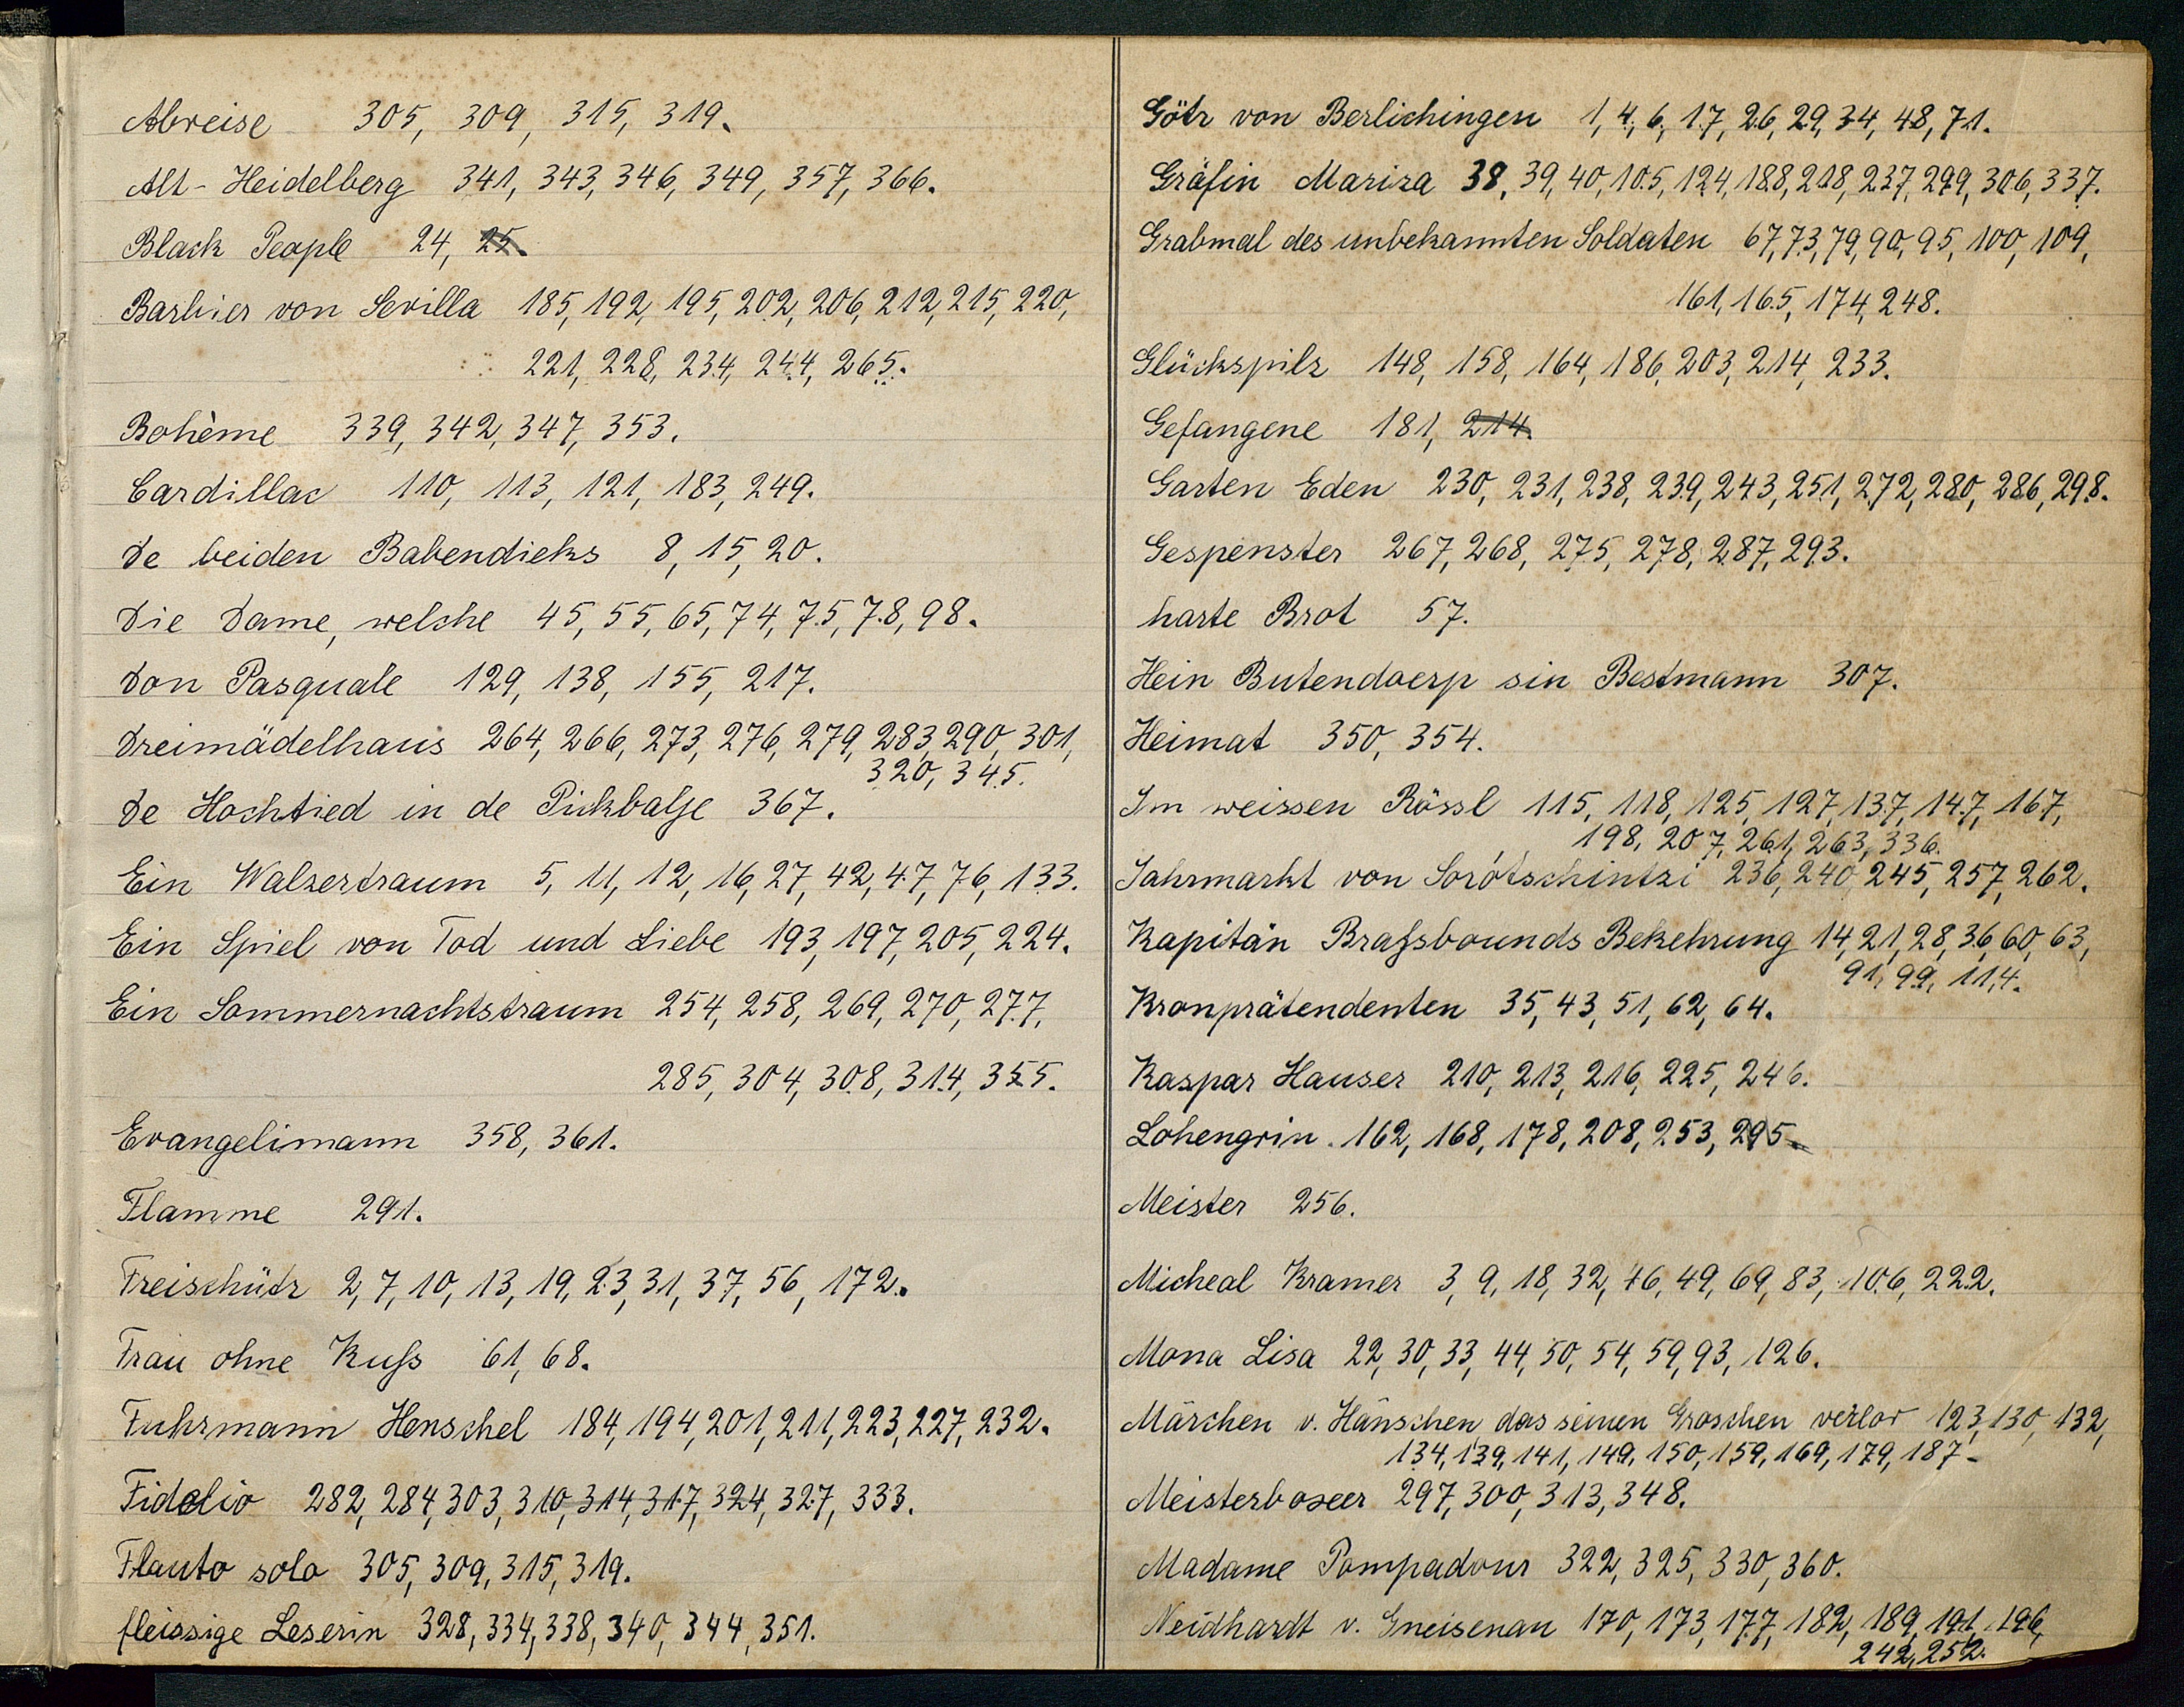 Abreise 305, 309, 315, 319.
Alt-Heidelberg 341, 343, 346, 349, 357, 366.
Black People 24, 25.
Barbier von Sevilla 185, 192, 195, 202, 206, 212, 215, 220,
221, 228, 234, 244, 265.
Bohème 339, 342, 347, 353.
Cardillac 110, 113, 121, 183, 249.
De beiden Babendieks 8, 15, 20.
Die Dame, welche 45, 55, 65, 74, 75, 78, 98.
Don Pasquale 129, 138, 155, 217.
Dreimädelhaus 264, 266, 273, 276, 279, 283, 290, 301,
320, 345.
De Hochtied in de Pickbalje 367.
Ein Walzertraum 5, 11, 12, 16, 27, 42, 47, 76, 133.
Ein Spiel von Tod und Liebe 193, 197, 205, 224.
Ein Sommernachtstraum 254, 258, 269, 270, 277,
285, 304, 308, 314, 355.
Evangelimann 358, 361.
Flamme 291.
Freischütz 2, 7, 10, 13, 19, 23, 31, 37, 56, 172.
Frau ohne Kuß 61, 68.
Fuhrmann Henschel 184, 194, 201, 211, 223, 227, 232.
Fidelio 282, 284, 303, 310, 314, 317, 324, 327, 333.
Flauto solo 305, 309, 315, 319.
fleissige Leserin 328, 334, 338, 340, 344, 351.
Götz von Berlichingen 1, 4, 6, 17, 26, 29, 34, 48, 71.
Gräfin Mariza 38, 39, 40, 105, 124, 188, 218, 237, 299, 306, 337.
Grabmal des unbekannten Soldaten 67, 73, 79, 90, 95, 100, 109,
161, 165, 174, 248.
Glückspilz 148, 158, 164, 186, 203, 214, 233.
Gefangene 181, 214.
Garten Eden 230, 231, 238, 239, 243, 251, 272, 280, 286, 298.
Gespenster 267, 268, 275, 278, 287, 293.
harte Brot 57.
Hein Butendoerp sin Bestmann 307.
Heimat 350, 354.
Im weissen Rössl 115, 118, 125, 127, 137, 147, 167,
198, 207, 261, 263, 336.
Jahrmarkt von Sorótschintzi 236, 240, 245, 257, 262.
Kapitän Braßbounds Bekehrung 14, 21, 28, 36, 60, 63,
91, 99, 114.
Kronprätendenten 35, 43, 51, 62, 64.
Kaspar Hauser 210, 213, 216, 225, 246.
Lohengrin. 162, 168, 178, 208, 253, 295.
Meister 256.
Micheal Kramer 3, 9, 18, 32, 46, 49, 69, 83, 106, 222.
Mona Lisa 22, 30, 33, 44, 50, 54, 59, 93, 126.
Märchen v. Hänschen, das seinen Groschen verlor 123, 130, 132,
134, 139, 141, 149, 150, 159, 169, 179, 187.
Meisterboxer 297, 300, 313, 348.
Madame Pompadour 322, 325, 330, 360.
Neidhardt v. Gneisenau 170, 173, 177, 182, 189, 191, 196,
242, 252.